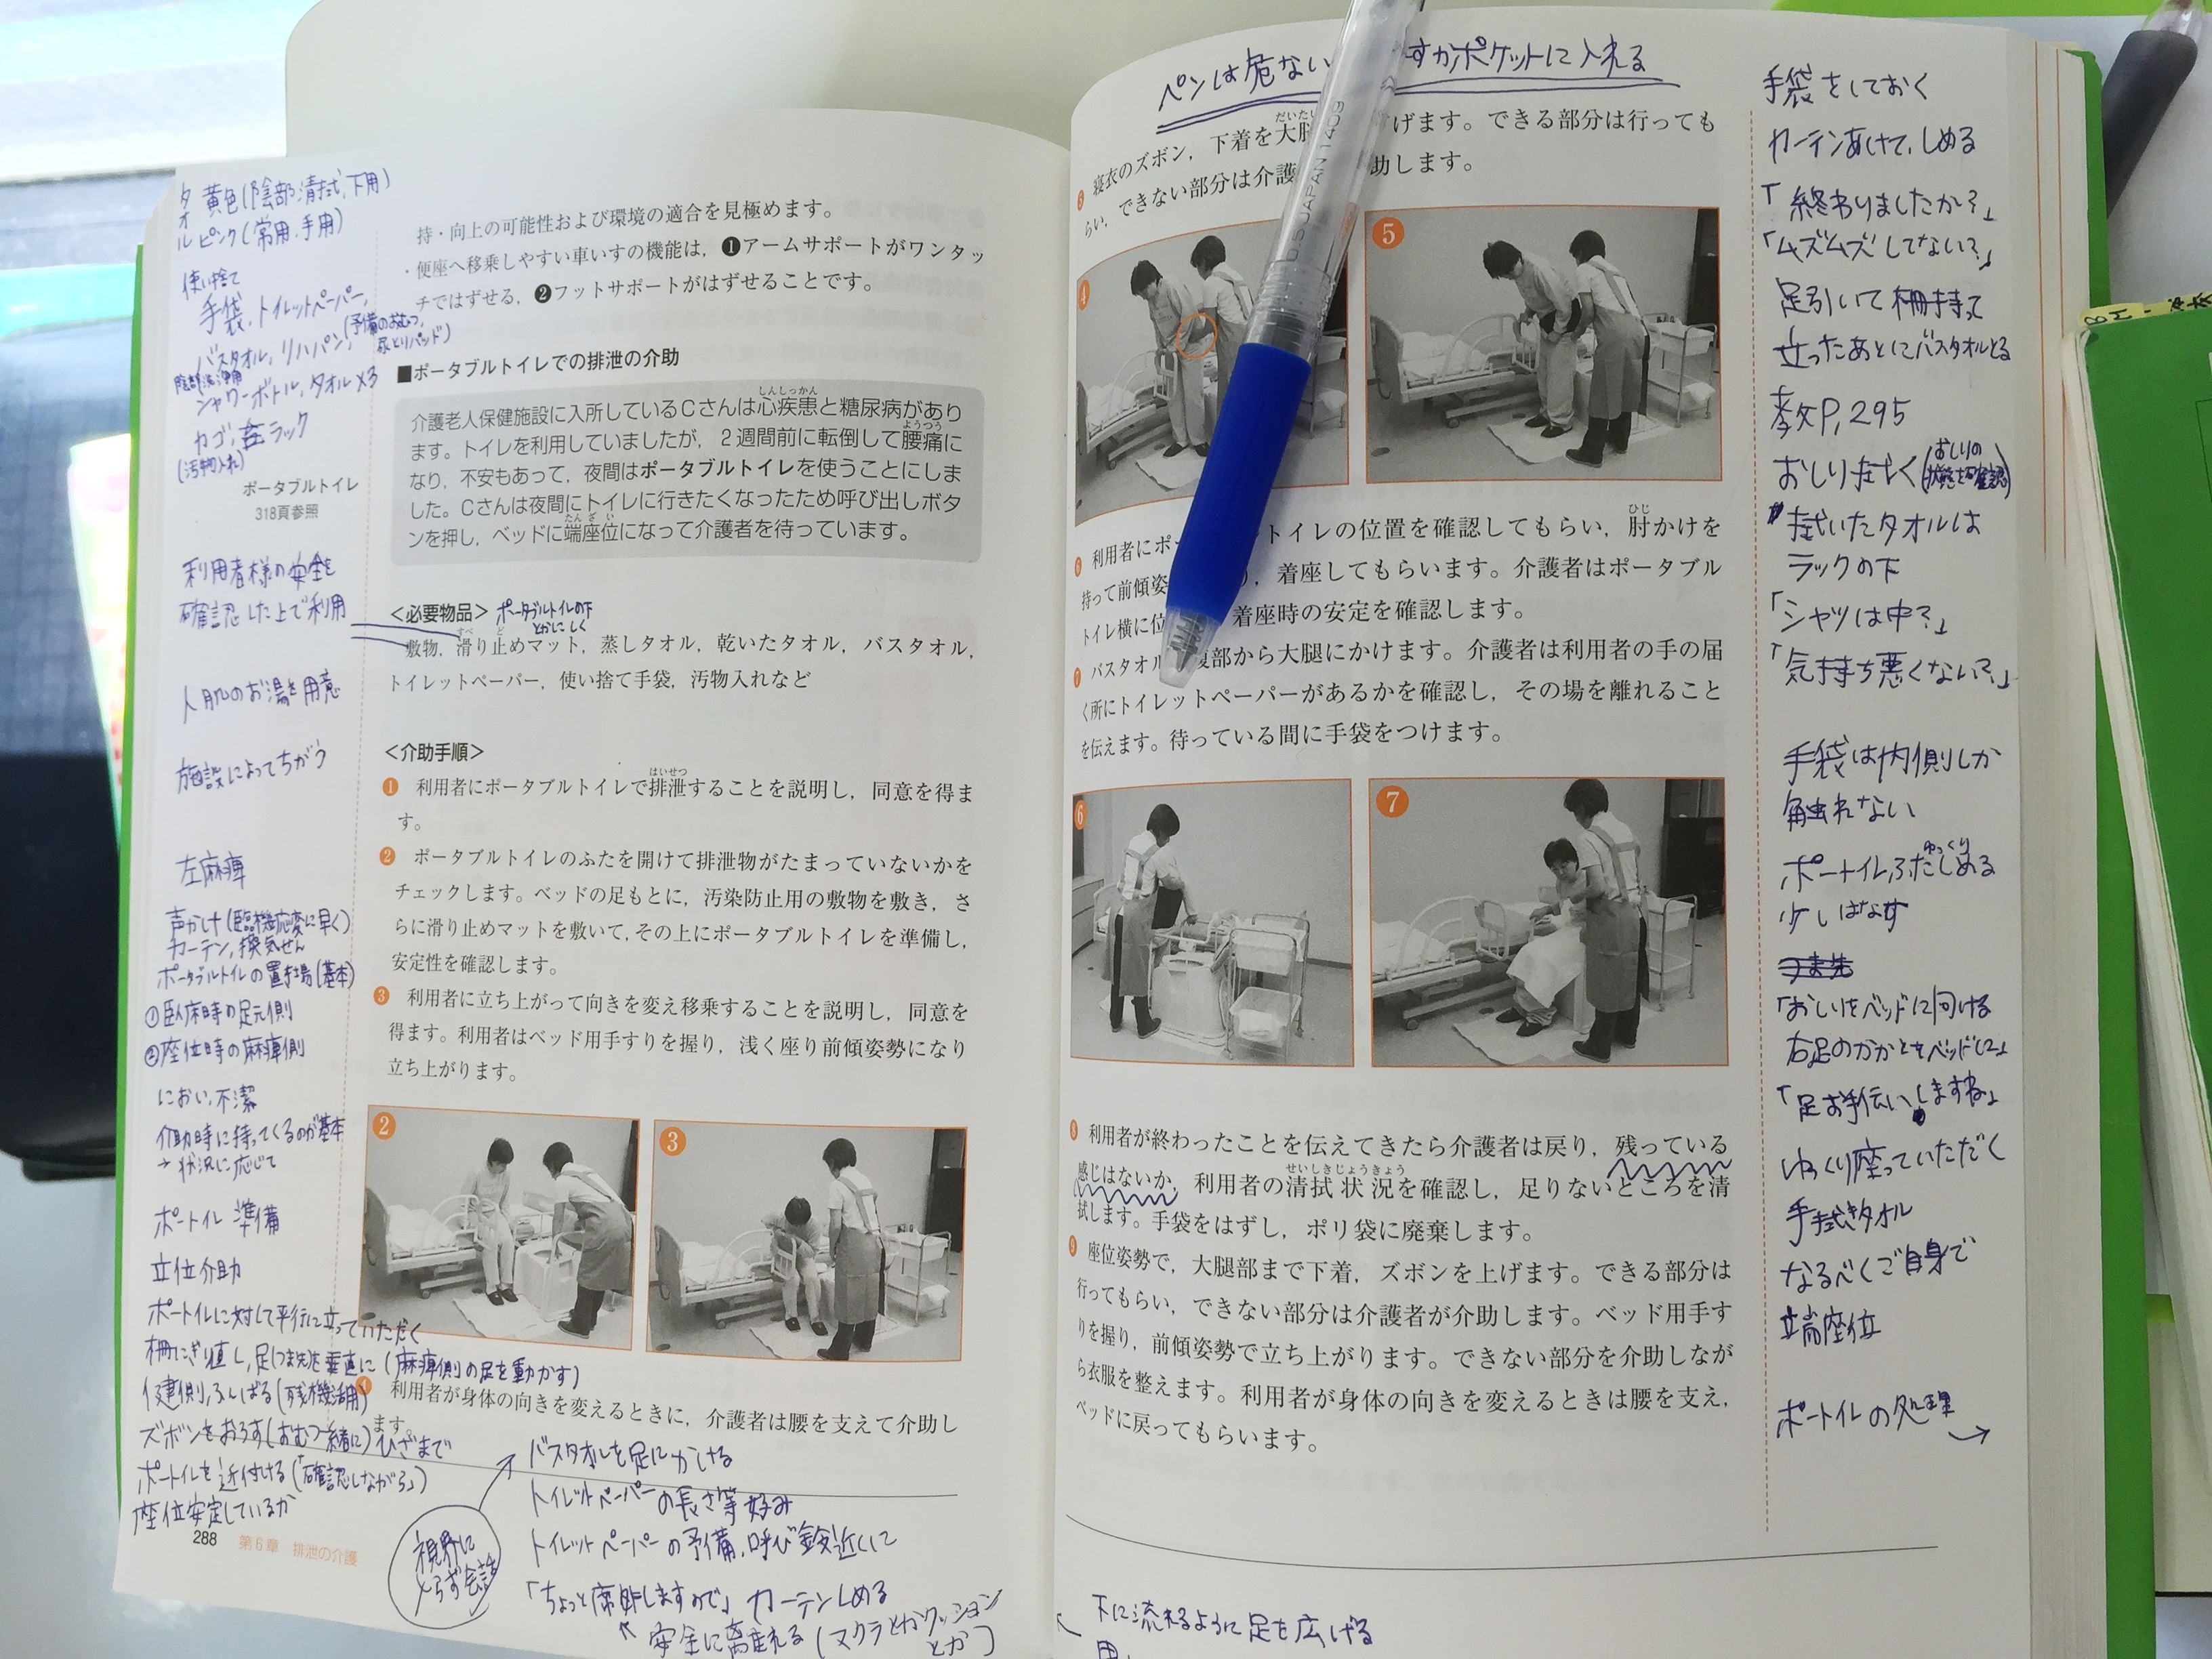 タオル 黄色(陰部清拭,下用)
ピンク(常用,手用)
使い捨て
手袋,トイレットペーパー,
バスタオル,リハパン,(予備のおむつ,
尿とりパッド)
陰部洗浄用
シャワーボトル,タオル×3
カゴ, ラック
(汚物入れ)
ポータブルトイレ
318頁参照
利用者様の安全を
確認した上で利用
人肌のお湯を用意
施設によってちがう
左麻痺
声かけ(臨機応変に早く)
カーテン,換気せん
ポータブルトイレの置き場(基本)
①臥床時の足元側
②座位時の麻痺側
におい,不潔
介助時に持ってくるのが基本
→状況に応じて
ポートイレ準備
立位介助
ポートイレに対して平行に立っていただく
柵にぎり直し,足(つま先)を垂直に(麻痺側の足を動かす)
健側,ふんばる(残機活用)
ズボンをおろす(おむつ一緒に)ひざまで
ポートイレを近付ける(「確認しながら」)
座位安定しているか
288 第6章 排泄の介護
持・向上の可能性および環境の適合を見極めます。
・便座へ移乗しやすい車いすの機能は,❶アームサポートがワンタッ
チではずせる,❷フットサポートがはずせることです。
■ポータブルトイレでの排泄の介助
介護老人保健施設に入所しているCさんは心疾患と糖尿病があり
しんしっかん
ます。トイレを利用していましたが,2週間前に転倒して腰痛に
ようつう
なり,不安もあって,夜間はポータブルトイレを使うことにしま
した。Cさんは夜間にトイレに行きたくなったため呼び出しボタ
ンを押し,ベッドに端座位になって介護者を待っています。
たんざい
<必要物品> ポータブルトイレの下
とかにしく
敷物,滑り止めマット,蒸しタオル,乾いたタオル,バスタオル,
すべ ど
トイレットペーパー,使い捨て手袋,汚物入れなど
<介助手順>
❶ 利用者にポータブルトイレで排泄することを説明し,同意を得ま
はいせつ
す。
❷ ポータブルトイレのふたを開けて排泄物がたまっていないかを
チェックします。ベッドの足もとに,汚染防止用の敷物を敷き,さ
らに滑り止めマットを敷いて,その上にポータブルトイレを準備し,
安定性を確認します。
❸ 利用者に立ち上がって向きを変え移乗することを説明し,同意を
得ます。利用者はベッド用手すりを握り,浅く座り前傾姿勢になり
立ち上がります。
2
3
利用者が身体の向きを変えるときに,介護者は腰を支えて介助し
ます。
視界に
入らず会話
バスタオルを足にかける
トイレットペーパーの長さ等好み
トイレットペーパーの予備,呼び鈴近くに
「ちょっと席外しますので」カーテンしめる
安全に離れる(マクラとかクッション
とか)
ペンは危ない すかポケットに入れる
5 寝衣のズボン,下着を大腿 げます。できる部分は行っても
だいたい
らい,できない部分は介護 助します。
4
5
6 利用者にポー トイレの位置を確認してもらい,肘かけを
ひじ
持って前傾姿 ,着座してもらいます。介護者はポータブル
トイレ横に位 着座時の安定を確認します。
7 バスタオル 腹部から大腿にかけます。介護者は利用者の手の届
く所にトイレットペーパーがあるかを確認し,その場を離れること
を伝えます。待っている間に手袋をつけます。
6
7
8 利用者が終わったことを伝えてきたら介護者は戻り,残っている
感じはないか,利用者の清拭状況を確認し,足りないところを清
せいしきじょうきょう
拭します。手袋をはずし,ポリ袋に廃棄します。
9 座位姿勢で,大腿部まで下着,ズボンを上げます。できる部分は
行ってもらい,できない部分は介護者が介助します。ベッド用手す
りを握り,前傾姿勢で立ち上がります。できない部分を介助しなが
ら衣服を整えます。利用者が身体の向きを変えるときは腰を支え,
ベッドに戻ってもらいます。
下に流れるように足を広げる
手袋をしておく
カーテンあけて,しめる
「終わりましたか?」
「ムズムズしてない?」
足引いて柵持って
立ったあとにバスタオルとる
教P,295
おしりたたく(おしりの
状態を確認)
拭いたタオルは
ラックの下
「シャツは中?」
「気持ち悪くない?」
手袋は内側しか
触れない
ポートイレふたしめる
ゆっくり
少しはなす
つま先
「おしりをベッドに向ける
右足のかかとをベッドに」
「足お手伝いしますね」
ゆっくり座っていただく
手拭きタオル
なるべくご自身で
端座位
ポートイレの処理→
JAPAN 1409